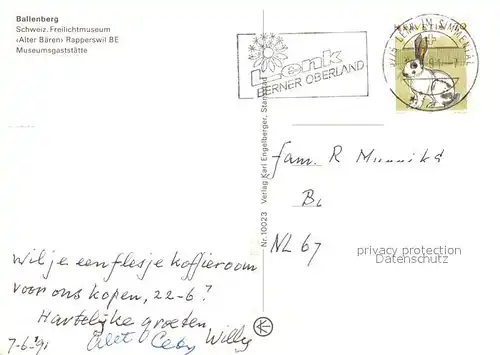 Ballenberg
Schweiz. Freilichtmuseum
‹Alter Bären› Rapperswil BE
Museumsgaststätte
Lenk
BERNER OBERLAND
HELVETIA
LENK IM SIMMENTAL
Nr. 10023 Verlag Karl Engelberger,
fam. R Munnik
B
NL 67
privacy protection
Datenschutz
Wil je een flesje koffieroom
voor ons kopen, 22-6?
Hartelijke groeten
7-6-'91 Willy